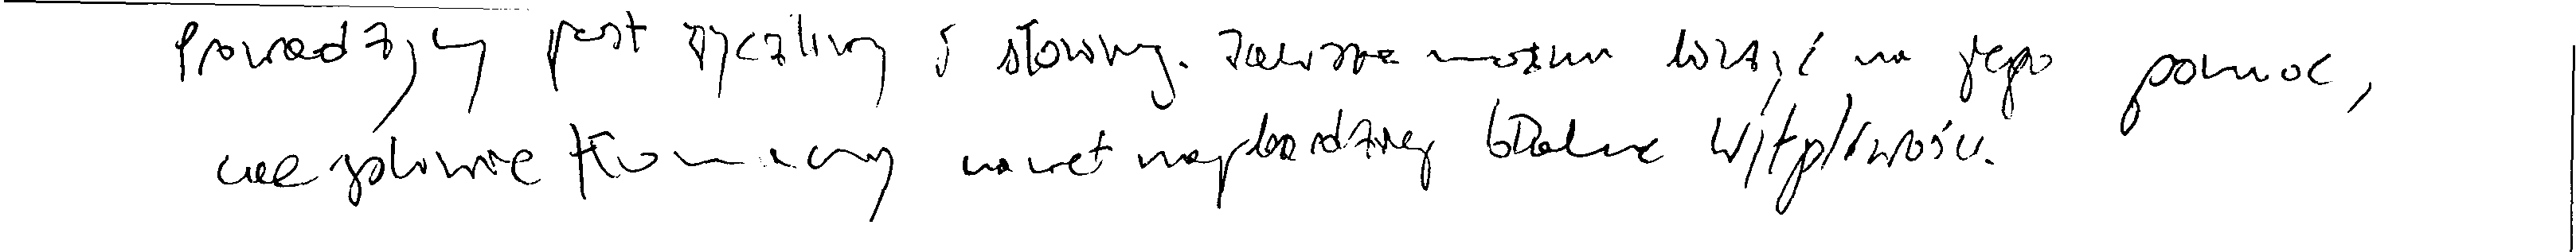 Prowadzący jest życzliwy i słowny. Zawsze można liczyć na jego pomoc,
cierpliwie tłumaczy nawet najbardziej błahe wątpliwości.